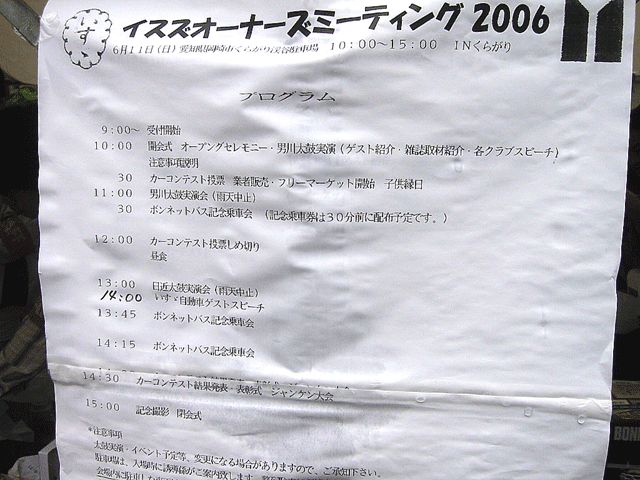 いすゞ
イスズオーナーズミーティング 2006
6月11日(日) 愛知県岡崎市くらがり渓谷駐車場 10:00~15:00 INくらがり
プログラム
9:00~ 受付開始
10:00 開会式 オープングセレモニー・男川太鼓実演(ゲスト紹介・雑誌取材紹介・各クラブスピーチ)
注意事項説明
30 カーコンテスト投票 業者販売・フリーマーケット開始 子供縁日
11:00 男川太鼓実演会(雨天中止)
30 ボンネットバス記念乗車会 (記念乗車券は30分前に配布予定です。)
12:00 カーコンテスト投票しめ切り
昼食
13:00 日近太鼓実演会(雨天中止)
14:00 いすゞ自動車ゲストスピーチ
13:45 ボンネットバス記念乗車会
14:15 ボンネットバス記念乗車会
14:30 カーコンテスト結果発表・表彰式 ジャンケン大会
15:00 記念撮影 閉会式
*注意事項
太鼓実演・イベント予定等、変更になる場合がありますので、ご承知下さい。
駐車場は、入場時に誘導係がご案内致します。
会場内に駐車した
BON